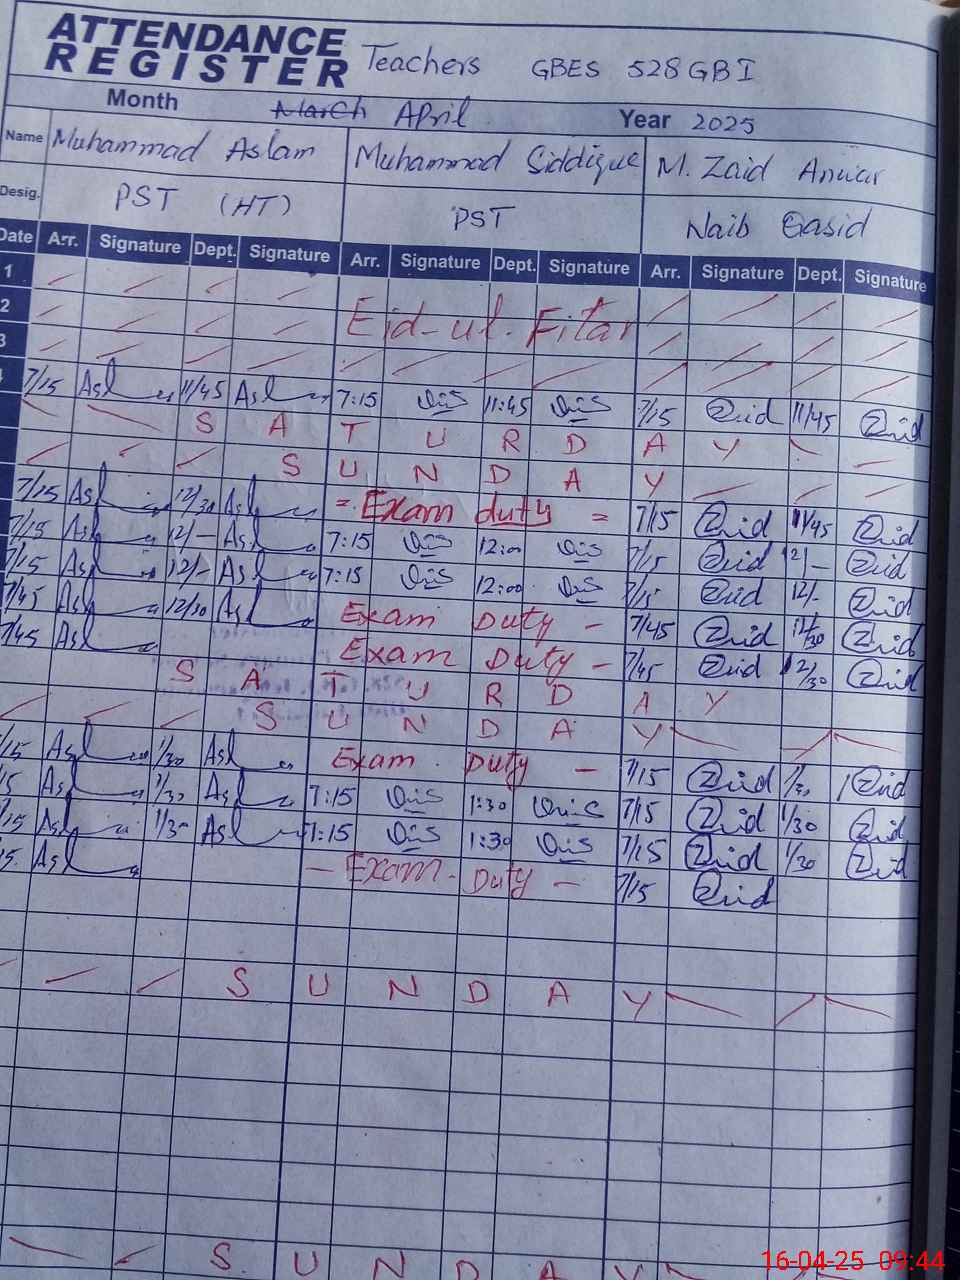 ATTENDANCE
REGISTER Teachers GBES 528 GB I
Month March April Year 2025
Name Muhammad Aslam Muhammad Siddique M. Zaid Anwar
Desig. PST (HT) PST Naib Qasid
Date Arr. Signature Dept. Signature Arr. Signature Dept. Signature Arr. Signature Dept. Signature
1
2 Eid-ul-Fitar
3
7/15 Asl 11/45 Asl 7:15 11:45 7/15 Zaid 11/45 Zaid
S A T U R D A Y
S U N D A Y
7/15 Asl 12/30 Asl = Exam duty = 7/15 Zaid 11/45 Zaid
7/15 Asl 12/- Asl 7:15 12:00 7/15 Zaid 12/- Zaid
7/15 Asl 12/- Asl 7:15 12:00 7/15 Zaid 12/- Zaid
7/45 Asl 12/30 Asl Exam Duty - 7/45 Zaid 12/30 Zaid
7/45 Asl Exam Duty - 7/45 Zaid 12/30 Zaid
S A T U R D A Y
S U N D A Y
/15 Asl 1/30 Asl Exam Duty - 7/15 Zaid 1/30 Zaid
15 Asl 1/30 Asl 7:15 1:30 7/15 Zaid 1/30 Zaid
/15 Asl 1/30 Asl 7:15 1:30 7/15 Zaid 1/30 Zaid
15 Asl - Exam Duty - 7/15 Zaid
S U N D A Y
S U N D A Y
16-04-25 09:44